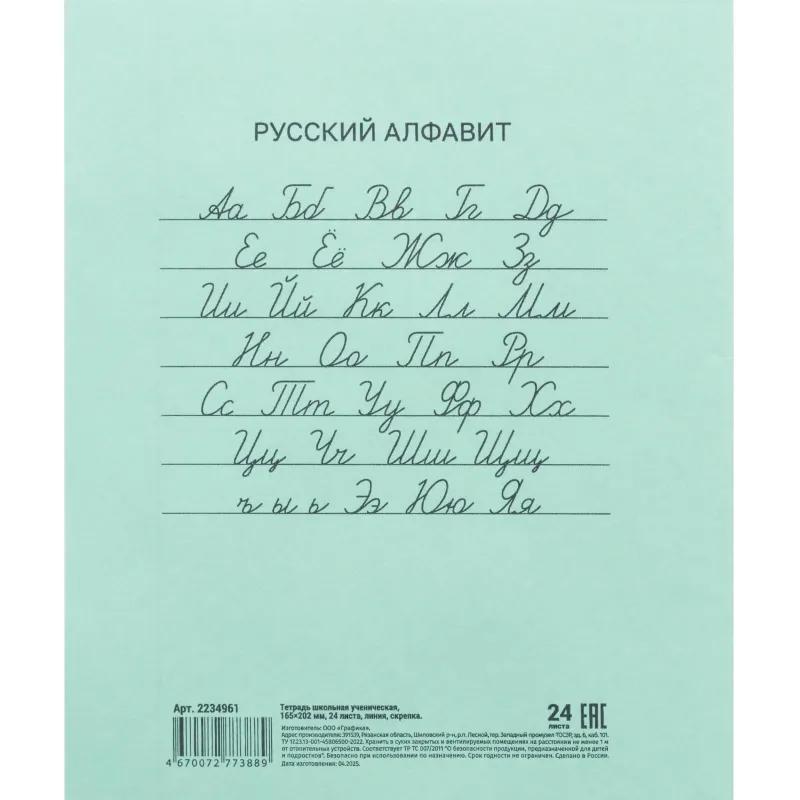 РУССКИЙ АЛФАВИТ
Аа Бб Вв Гг Дд
Ее Ёё Жж Зз
Ии Йй Кк Лл Мм
Нн Оо Пп Рр
Сс Тт Уу Фф Хх
Цц Чч Шш Щщ
ъ ы ь Ээ Юю Яя
Арт. 2234961
4 670072 773889
Тетрадь школьная ученическая,
165×202 мм, 24 листа, линия, скрепка.
Изготовитель: ООО «Графика».
Адрес производителя: 391539, Рязанская область, Шиловский р-н, р.п. Лесной, тер. Западный промузел ТОСЭР, зд. 6, каб. 101.
ТУ 17.23.13-001-45806500-2022. Хранить в сухих закрытых и вентилируемых помещениях на расстоянии не менее 1 м
от отопительных устройств. Соответствует ТР ТС 007/2011 "О безопасности продукции, предназначенной для детей
и подростков". Безопасно при использовании по назначению. Срок годности не ограничен. Сделано в России.
Дата изготовления: 04.2025.
24
листа
ЕАС